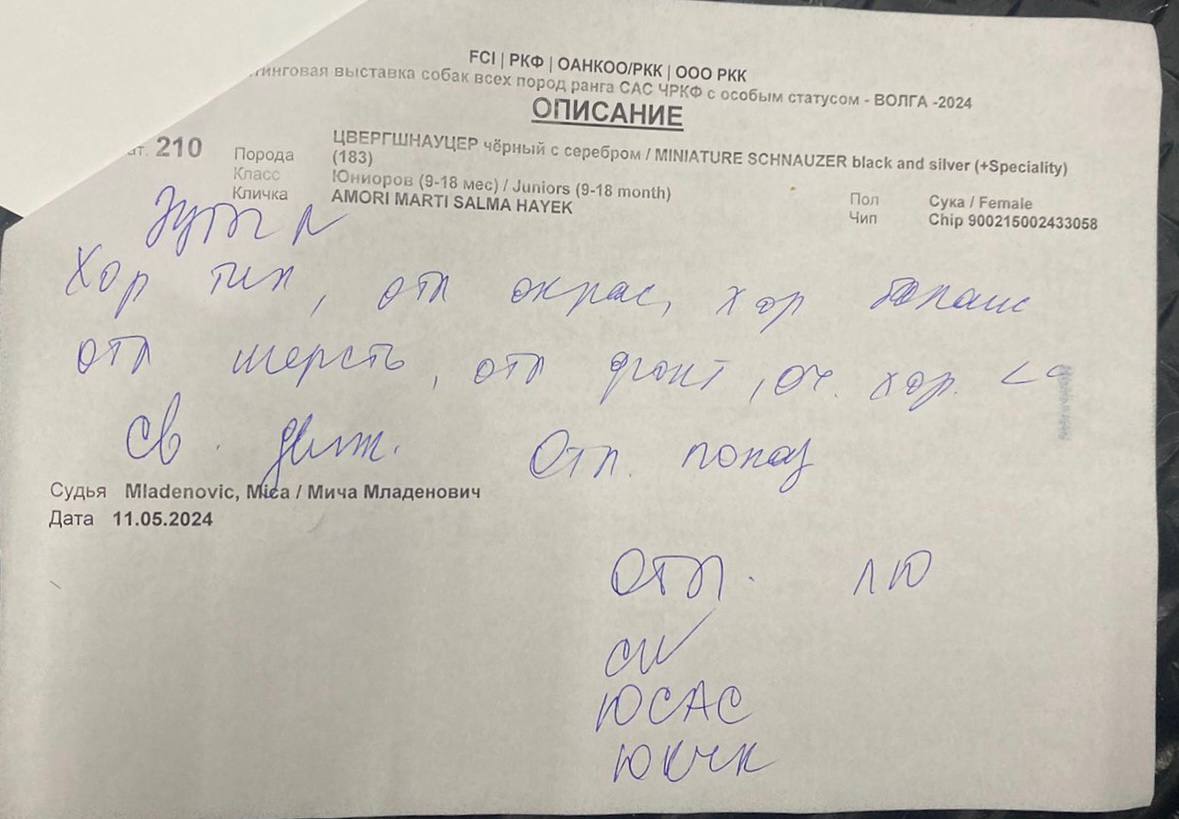 FCI | РКФ | ОАНКОО/РКК | ООО РКК
тинговая выставка собак всех пород ранга САС ЧРКФ с особым статусом - ВОЛГА -2024
ОПИСАНИЕ
ат. 210
Порода ЦВЕРГШНАУЦЕР чёрный с серебром / MINIATURE SCHNAUZER black and silver (+Speciality) (183)
Класс Юниоров (9-18 мес) / Juniors (9-18 month)
Кличка AMORI MARTI SALMA HAYEK
Пол Сука / Female
Чип Chip 900215002433058
Зубы N
Хор тип, отл окрас, хор баланс
отл шерсть, отл фронт, оч. хор.
Св. движ. Отл. показ
Судья Mladenovic, Mica / Мича Младенович
Дата 11.05.2024
Отл. ЛЮ
CW
ЮСАС
ЮКЧК